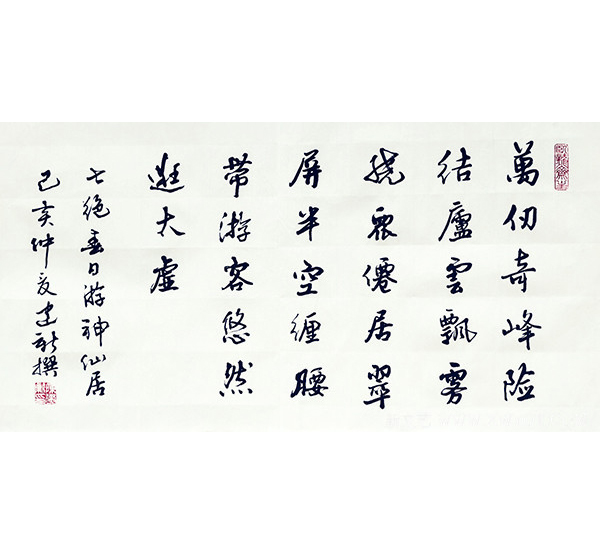 萬仞奇峰险
结廬雲飄雾
绕眾僊居翠
屏半空缠腰
带游客悠然
逛太虚
七绝春日游神仙居
己亥仲夏建撰